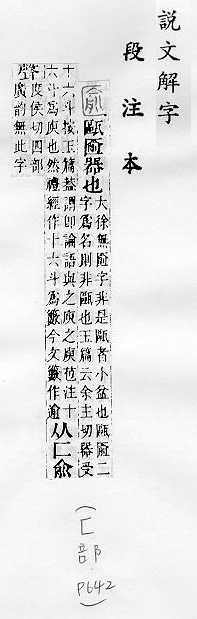 說文解字
段注本
匬甌匬器也
大徐無匬字非是甌者小盆也甌匬二
字爲名則非甌也玉篇云余主切器受
十六斗按玉篇葢謂卽論語與之庾苞注十
六斗爲庾也然禮經作十六斗爲籔今文籔作逾
从匚兪
聲度侯切四部
廣韵無此字
(匚部 P642)